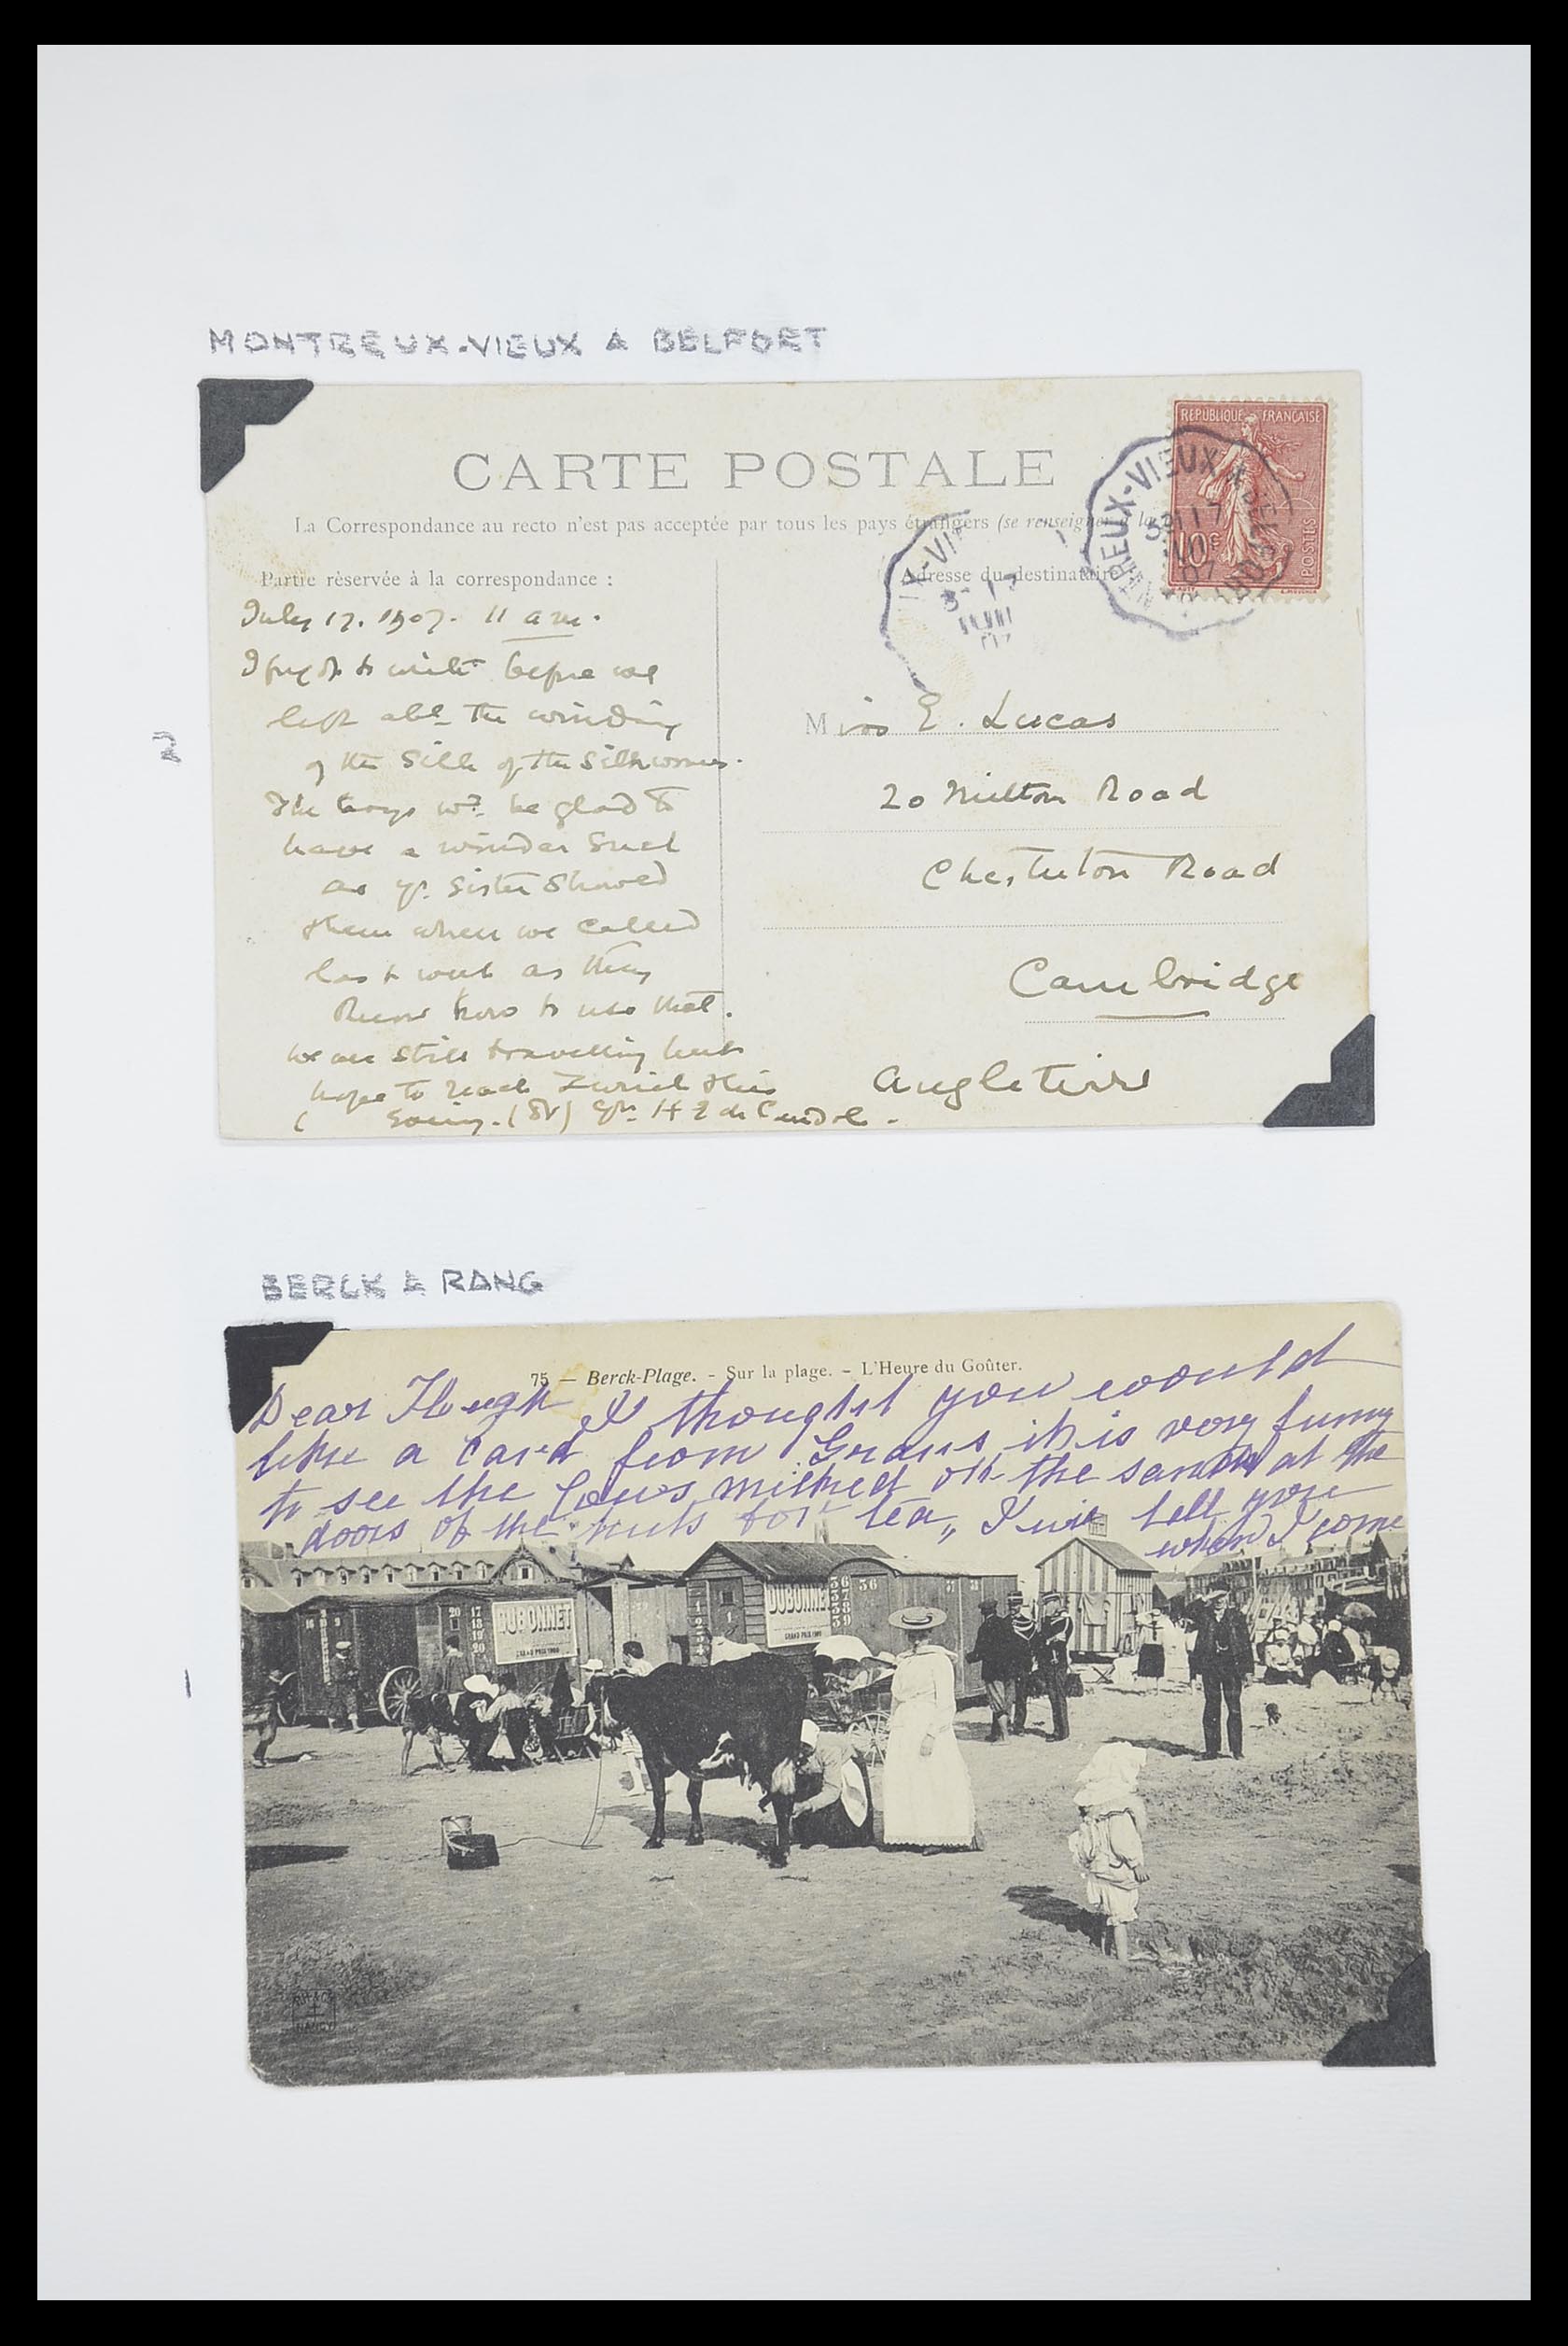 MONTREUX-VIEUX A BELFORT
CARTE POSTALE
La Correspondance au recto n'est pas acceptée par tous les pays étrangers (se renseigner à la
Partie réservée à la correspondance :
Adresse du destinataire
REPUBLIQUE FRANÇAISE
10 c
POSTES
MONTREUX-VIEUX A BELFORT
17
07
UX-VI
July 17. 1907. 11 a.m.
I forgot to write before we
left abt the winding
of the silk of the silkworms.
The boys wd. be glad to
have a winder such
as yr. sister showed
them when we called
last week as they
know how to use that.
We are still travelling but
hope to reach Zurich this
evening.
Miss E. Lucas
20 Milton Road
Chesterton Road
Cambridge
Angleterre
2
BERCK A RANG
75 — Berck-Plage. - Sur la plage. - L'Heure du Goûter.
Dear Hugh I thought you would
like a card from Grans it is very funny
to see the Cows milked on the sands at the
doors of the huts for tea,, I will tell you
when I come
DUBONNET
GRAND PRIX 1900
DUBONNET
GRAND PRIX 1900
20
17
18
19
20
36
1
NANCY